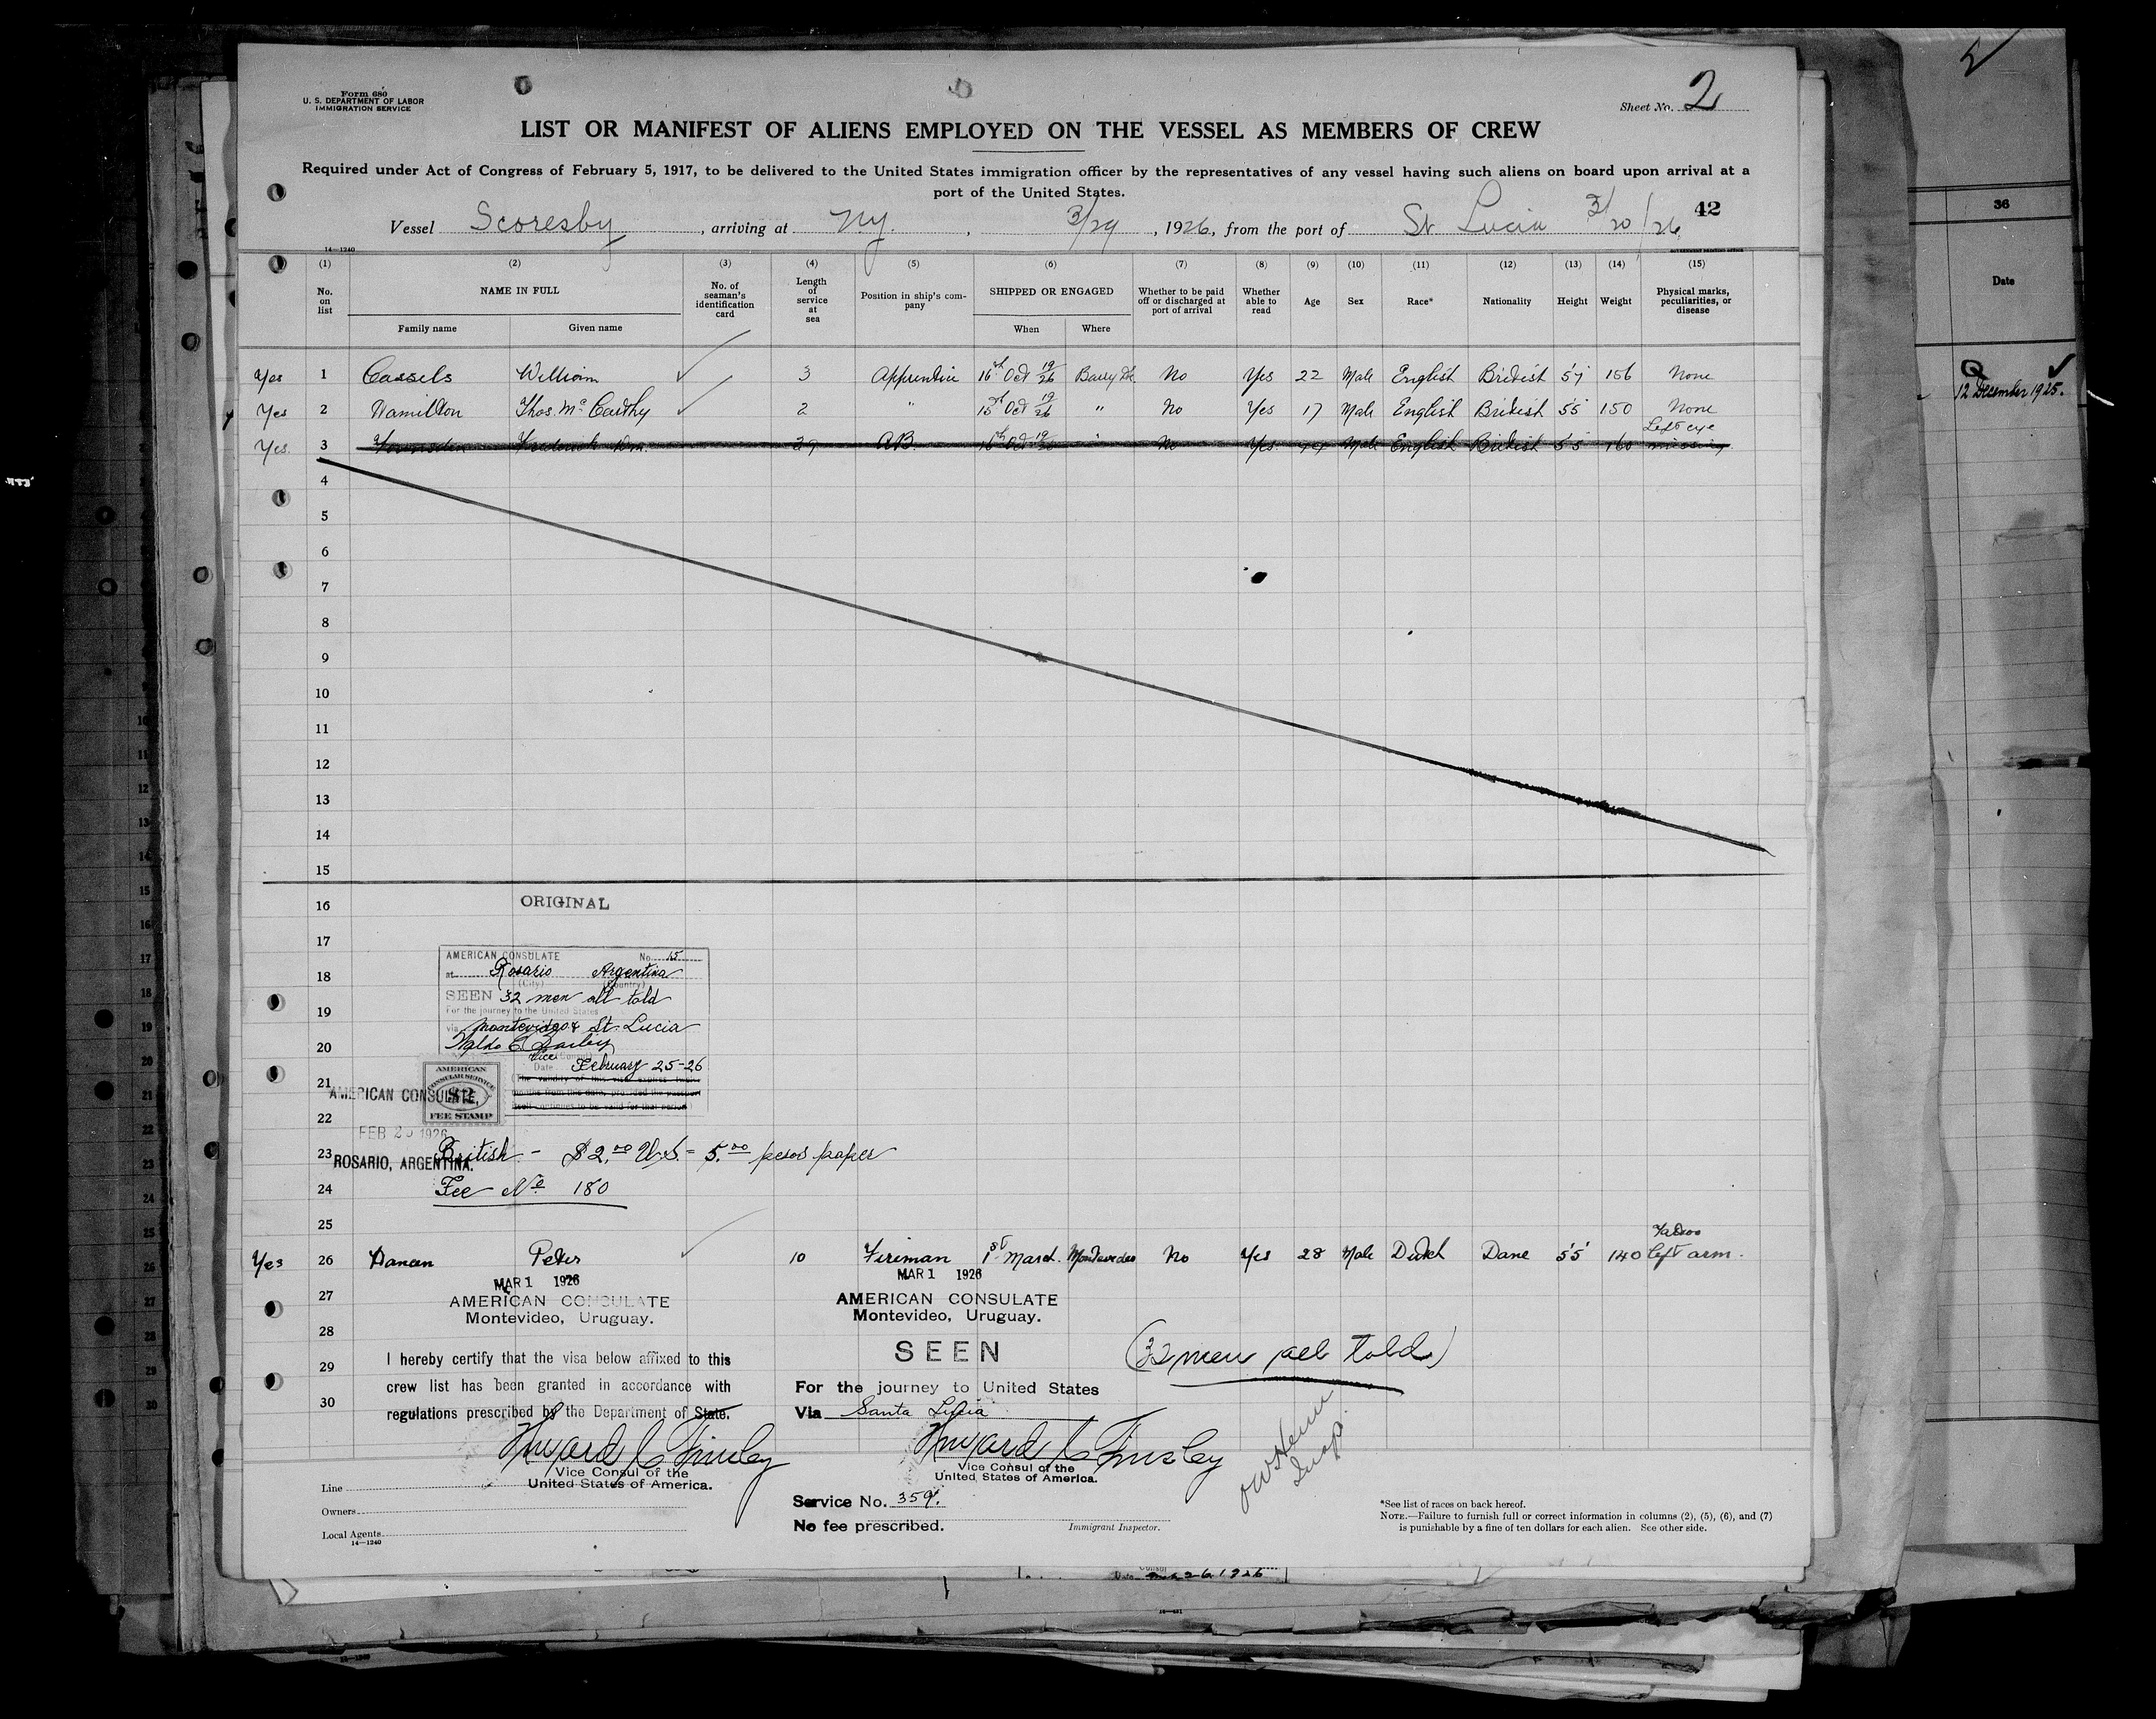 Form 680
U. S. DEPARTMENT OF LABOR
IMMIGRATION SERVICE
Sheet No. 2
LIST OR MANIFEST OF ALIENS EMPLOYED ON THE VESSEL AS MEMBERS OF CREW
Required under Act of Congress of February 5, 1917, to be delivered to the United States immigration officer by the representatives of any vessel having such aliens on board upon arrival at a
port of the United States.
42
Vessel Scoresby, arriving at Ny., 3/29, 1926, from the port of St Lucia 3/20/26
14—1240
(1) (2) (3) (4) (5) (6) (7) (8) (9) (10) (11) (12) (13) (14) (15)
No. on list
NAME IN FULL
Family name Given name
No. of seaman's identification card
Length of service at sea
Position in ship's company
SHIPPED OR ENGAGED
When Where
Whether to be paid off or discharged at port of arrival
Whether able to read
Age
Sex
Race*
Nationality
Height
Weight
Physical marks, peculiarities, or disease
Yes 1 Cassels William 3 Apprentice 16th Oct 19/26 Barry Dk. No Yes 22 Male English British 5'7 156 None
Yes 2 Hamilton Thos. Mc Carthy 2 " 15th Oct 19/26 " No Yes 17 Male English British 5'5 150 None
Yes. 3 Frederick Wm. 29 A.B. 16th Oct " No Yes. Male English British 5'5 160 Left eye missing
4
5
6
7
8
9
10
11
12
13
14
15
16 ORIGINAL
17
AMERICAN CONSULATE No. 15
18 at Rosario Argentina
(City) (Country)
SEEN 32 men all told
19 For the journey to the United States
via Montevideo & St. Lucia
20 Waldo E. Bailey
Vice Consul
Date February 25-26
21
The validity of this visa expires twelve
months from this date, provided the passport
itself continues to be valid for that period
AMERICAN CONSULAR SERVICE
$2
FEE STAMP
AMERICAN CONSULATE,
22
FEB 25 1926
ROSARIO, ARGENTINA.
23 British - $2.00 U.S. = 5.00 pesos paper
24 Fee No 180
25
Yes 26 Hansen Peter 10 Fireman 1st March. Montevideo No Yes 28 Male Dutch Dane 5'5' 140 Tattoo left arm.
MAR 1 1926
AMERICAN CONSULATE
Montevideo, Uruguay.
I hereby certify that the visa below affixed to this
crew list has been granted in accordance with
regulations prescribed by the Department of State.
Howard C Finsley
Vice Consul of the
United States of America.
MAR 1 1926
AMERICAN CONSULATE
Montevideo, Uruguay.
SEEN
For the journey to United States
Via Santa Lucia
Howard C Finsley
Vice Consul of the
United States of America.
Service No. 359.
No fee prescribed.
27
28
29
30
(32 men all told)
Insp.
Line
Owners
Local Agents
14—1240
Immigrant Inspector.
*See list of races on back hereof.
NOTE.—Failure to furnish full or correct information in columns (2), (5), (6), and (7)
is punishable by a fine of ten dollars for each alien. See other side.
36
Date
12 December 1925.